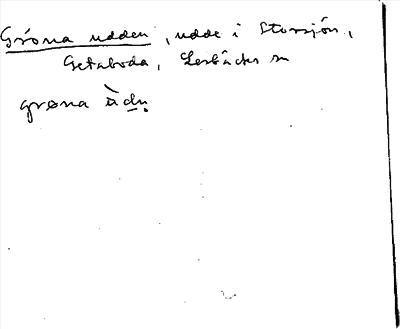 Gröna udden, udde i Storsjön,
Getaboda, Lerbäcks sn
grøna àdn̥